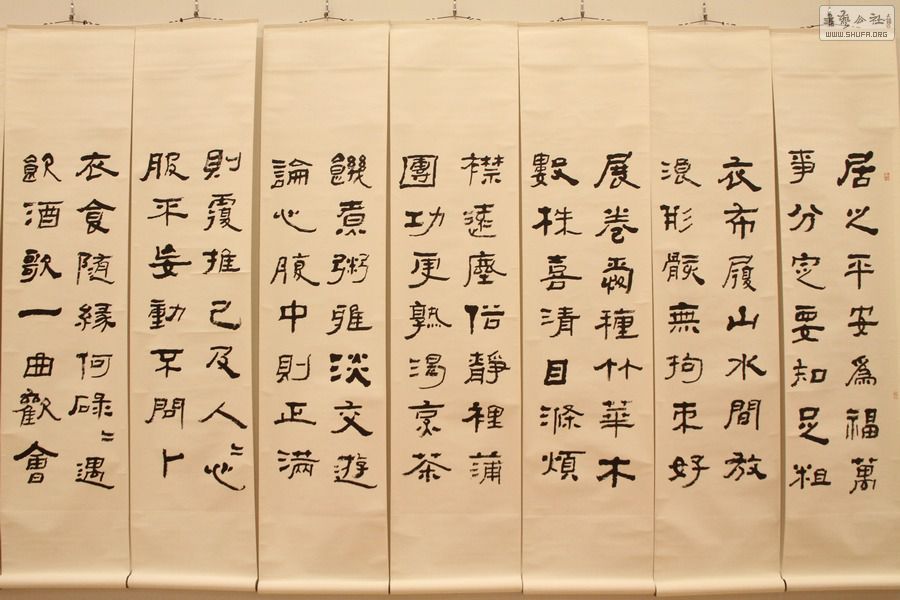 居之平安為福萬
事分定要知足粗
衣布履山水間放
浪形骸無拘束好
展卷種竹華木
數株喜清目滌煩
襟遠塵俗靜裡蒲
團功更熟渴烹茶
饑煮粥雅淡交遊
論心腹中則正滿
則覆推己及人〻心
服平妄動不問卜
衣食隨緣何碌〻遇
飲酒歌一曲歡會
書藝公社
WWW.SHUFA.ORG